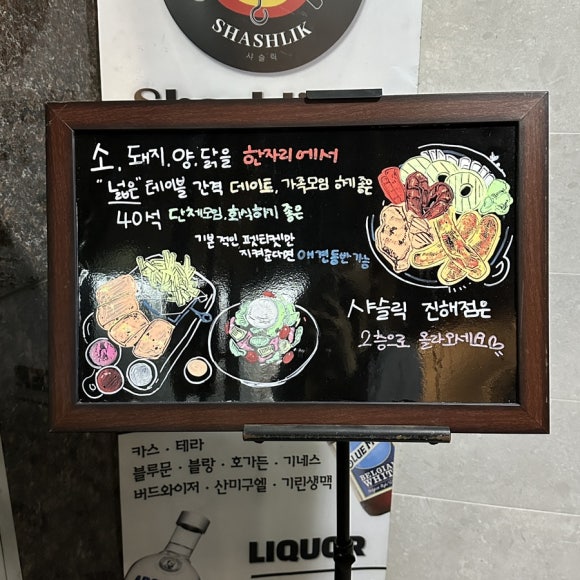 SHASHLIK
샤슬릭
소, 돼지, 양, 닭을 한자리에서
"넓은" 테이블 간격 데이트, 가족모임 하기 좋은
40석 단체모임, 회식하기 좋은
기본적인 펫티켓만
지켜준다면 애견동반가능
샤슬릭 진해점은
2층으로 올라와세요
카스 · 테라
블루문 · 블랑 · 호가든 · 기네스
버드와이저 · 산미구엘 · 기린생맥
BLUE MOON
BELGIAN
WHITE
LIQUOR